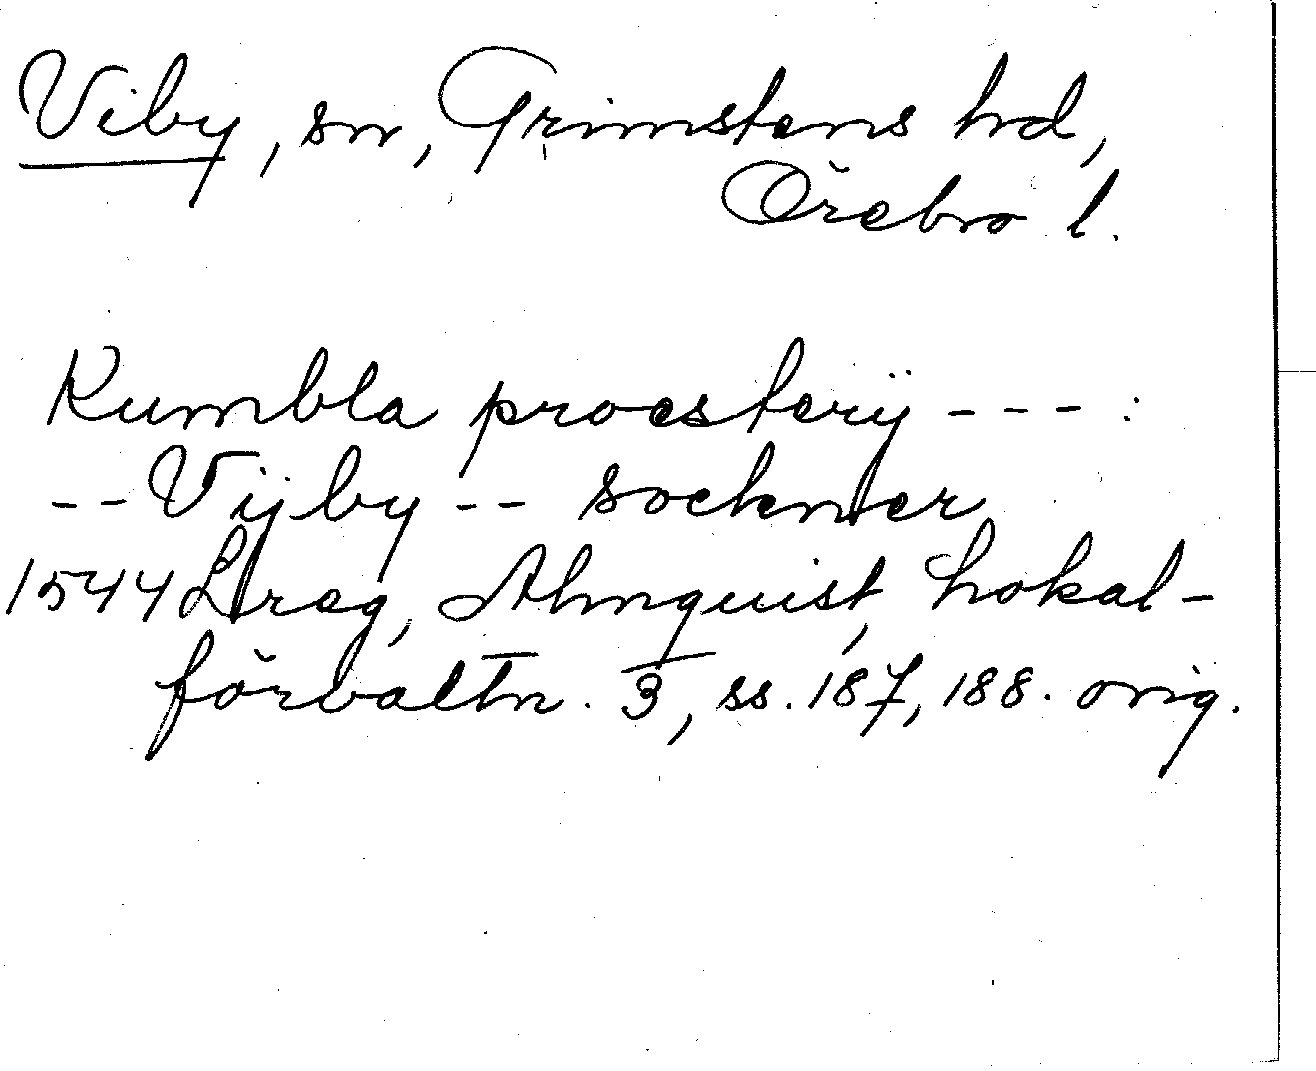 Viby, sn, Grimstens hd,
Örebro l.
Kumbla proesterÿ --- :
-- Vijby -- sockner
1544 Lreg, Almquist, Lokal-
förvaltn. 3, ss. 187, 188. orig.